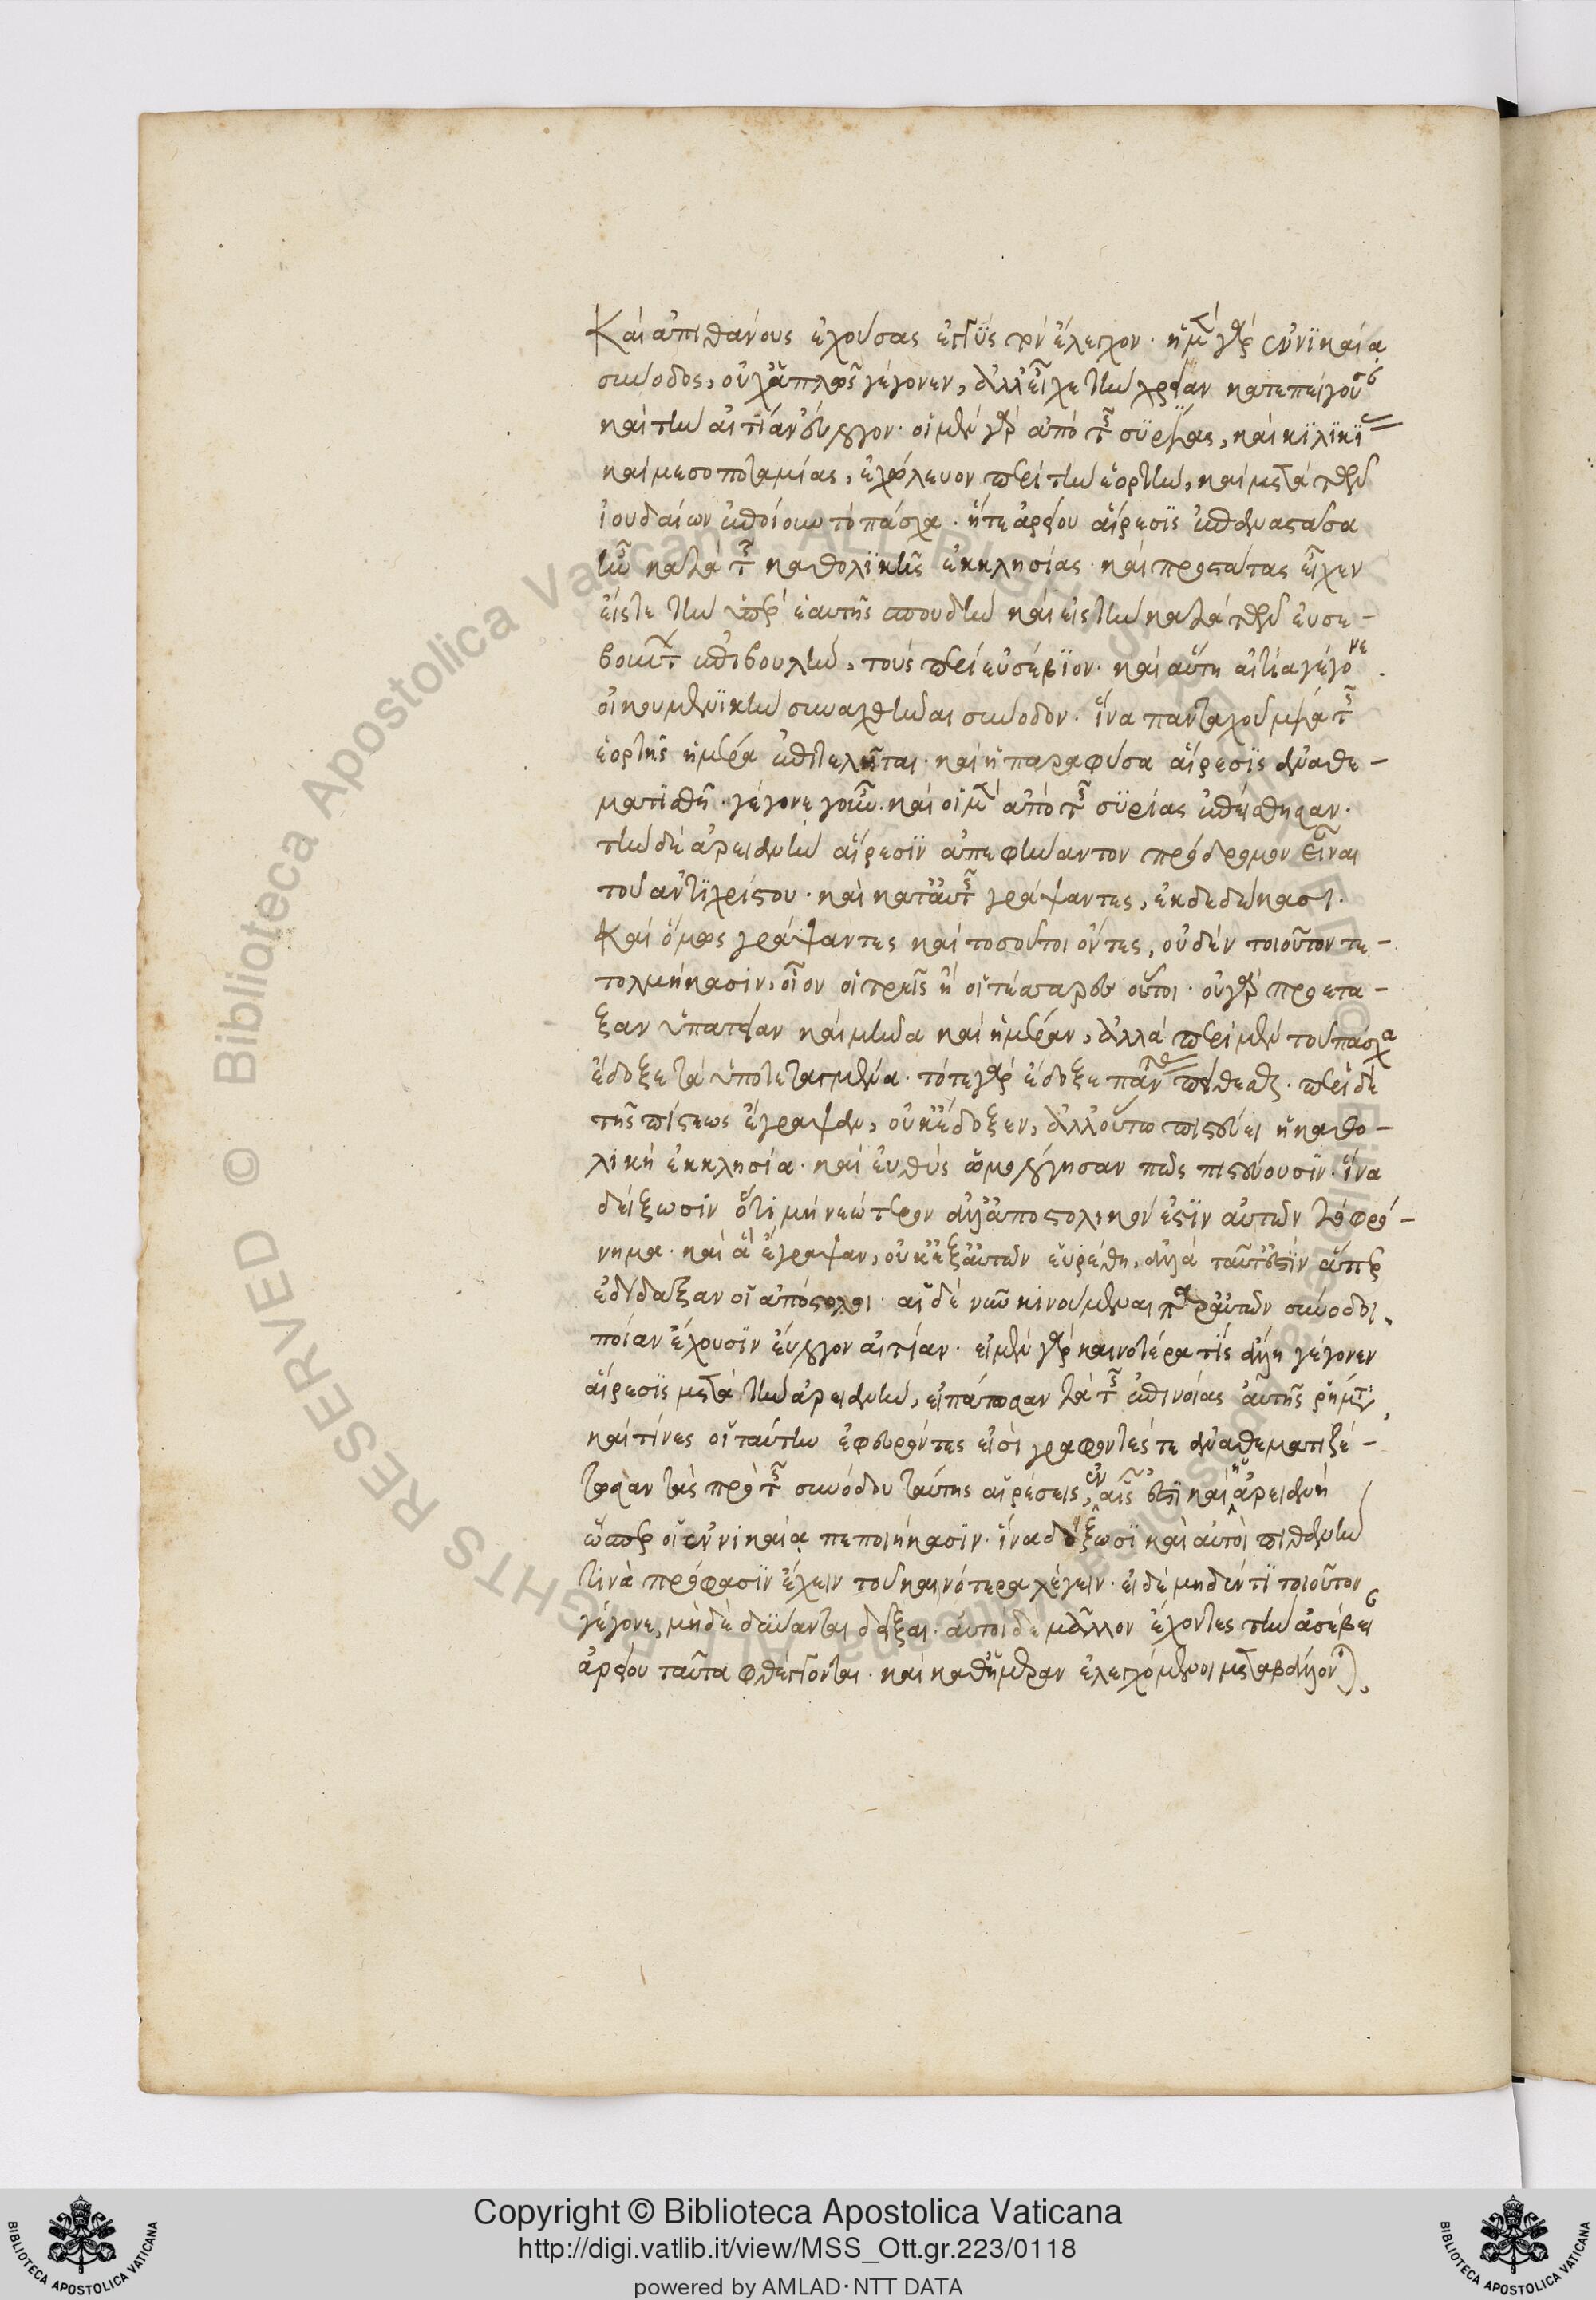 Καὶ ἀπιθάνους ἐχούσας ἐγγὺς τὸν ἔλεγχον· ἡ μὲν γὰρ ἐν νικαία
σύνοδος, οὐχ ἁπλῶς γέγονεν, ἀλλ' εἶχε τὴν χρείαν κατεπείγουσαν
καὶ τὴν αἰτίαν εὔλογον· οἱ μὲν γὰρ ἀπὸ τῆς συρίας, καὶ κιλικίας
καὶ μεσοποταμίας, ἐχώλευον περὶ τὴν ἑορτὴν, καὶ μετὰ τῶν
ἰουδαίων ἐποίουν τὸ πάσχα· ἥτε ἀρείου αἵρεσις ἐπαναστᾶσα
ἦν κατὰ τῆς καθολικῆς ἐκκλησίας· καὶ προστάτας εἶχεν
εἴς τε τὴν ὑπὲρ ἑαυτῆς σπουδὴν καὶ εἰς τὴν κατὰ τῶν εὐσε-
βούντων ἐπιβουλὴν, τοὺς περὶ εὐσέβιον· καὶ αὕτη αἰτία γέγονε
οἰκουμενικὴν συναχθῆναι σύνοδον· ἵνα πανταχοῦ μία τῆς
ἑορτῆς ἡμέρα ἐπιτελῆται· καὶ ἡ παραφύσα αἵρεσις ἀναθε-
ματισθῆ· γέγονε γοῦν· καὶ οἱ μὲν ἀπὸ τῆς συρίας ἐπείσθησαν·
τὴν δὲ ἀρειανὴν αἵρεσιν ἀπεφήναντον πρόδρομον εἶναι
τοῦ ἀντιχρίστου· καὶ κατ' αὐτῆς γράψαντες, ἐκδεδώκασι·
Καὶ ὅμως γράψαντες καὶ τοσοῦτοι ὄντες, οὐδὲν τοιοῦτον τε-
τολμήκασιν, οἷον οἱ τρεῖς ἢ οἱ τέσσαρες οὗτοι· οὐ γὰρ προέτα-
ξαν ὑπατείαν καὶ μῆνα καὶ ἡμέραν, ἀλλὰ περὶ μὲν τοῦ πάσχα
ἔδοξε τὰ ὑποτεταγμένα· τότε γὰρ ἔδοξε πάντας πείθεσθαι· περὶ δὲ
τῆς πίστεως ἔγραψαν, οὐκ ἔδοξεν, ἀλλ' οὕτω πιστεύει ἡ καθο-
λικὴ ἐκκλησία· καὶ εὐθὺς ὡμολόγησαν πῶς πιστεύουσιν· ἵνα
δείξωσιν ὅτι μὴ νεώτερον ἀλλ' ἀποστολικόν ἐστιν αὐτῶν τὸ φρό-
νημα· καὶ ἃ ἔγραψαν, οὐκ ἐξ αὐτῶν εὑρέθη, ἀλλὰ ταῦτ' ἐστὶν ἅπερ
ἐδίδαξαν οἱ ἀπόστολοι· αἱ δὲ νῦν κινούμεναι παρ' αὐτῶν σύνοδοι,
ποίαν ἔχουσιν εὔλογον αἰτίαν· εἰ μὲν γὰρ καινοτέρα τίς ἄλλη γέγονεν
αἵρεσις μετὰ τὴν ἀρειανὴν, εἰπάτωσαν τὰ τῆς ἐπινοίας αὐτῆς ῥήματα,
καὶ τίνες οἱ ταύτην ἐφευρόντες εἰσὶ γράφοντές τε ἀναθεματιζέ-
τωσαν τὰς πρὸ τῆς συνόδου ταύτης αἱρέσεις, ἐν αἷς ἐστὶ καὶ ἡ ἀρειανὴ
ὥσπερ οἱ ἐν νικαία πεποιήκασιν· ἵνα δόξωσι καὶ αὐτοὶ πιθανὴν
τινὰ πρόφασιν ἔχειν τοῦ καινότερα λέγειν· εἰ δὲ μηδέν τι τοιοῦτον
γέγονε, μὴ δὲ δύνανται δεῖξαι· αὐτοὶ δὲ μᾶλλον ἔχοντες τὴν ἀσέβειαν
ἀρείου ταῦτα φθέγγονται· καὶ καθ' ἡμέραν ἐλεγχόμενοι μεταβάλλονται,
Copyright © Biblioteca Apostolica Vaticana
http://digi.vatlib.it/view/MSS_Ott.gr.223/0118
powered by AMLAD·NTT DATA